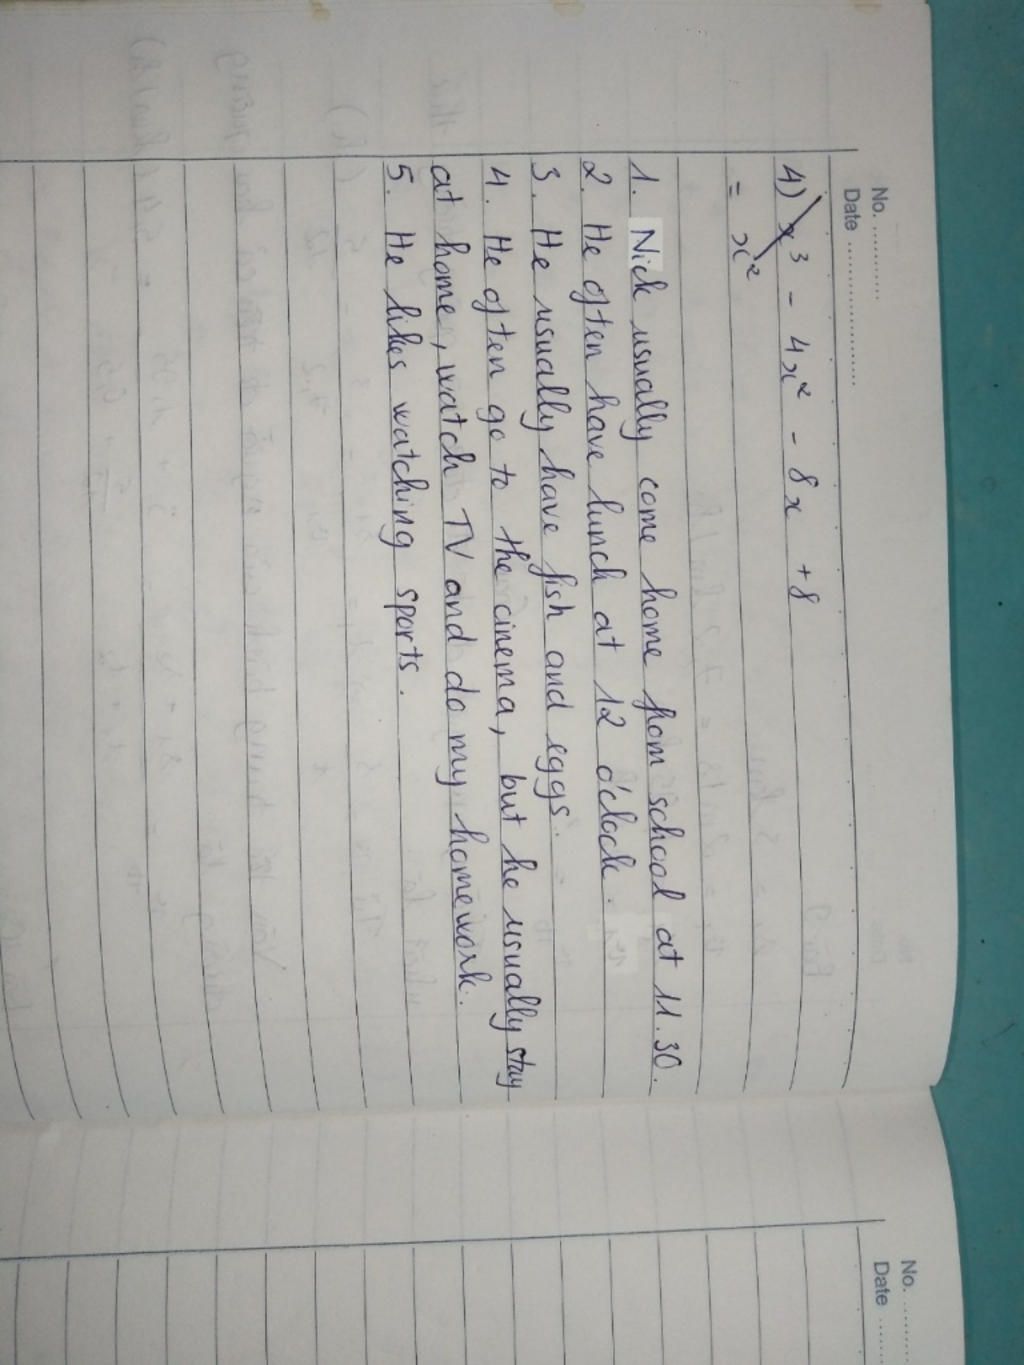 No. ...........
Date ......................
4) x³ - 4x² - 8x + 8
= x²
1. Nick usually come home from school at 11.30.
2. He often have lunch at 12 o'clock.
3. He usually have fish and eggs.
4. He often go to the cinema, but he usually stay
at home, watch TV and do my homework.
5. He likes watching sports.
No. ...........
Date ......